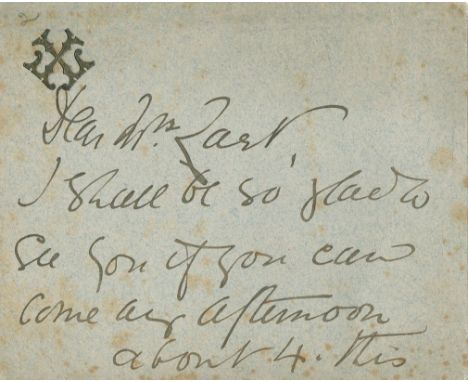 Dear Mrs. East,
I shall be so glad to
see you if you can
come any afternoon
about 4. this